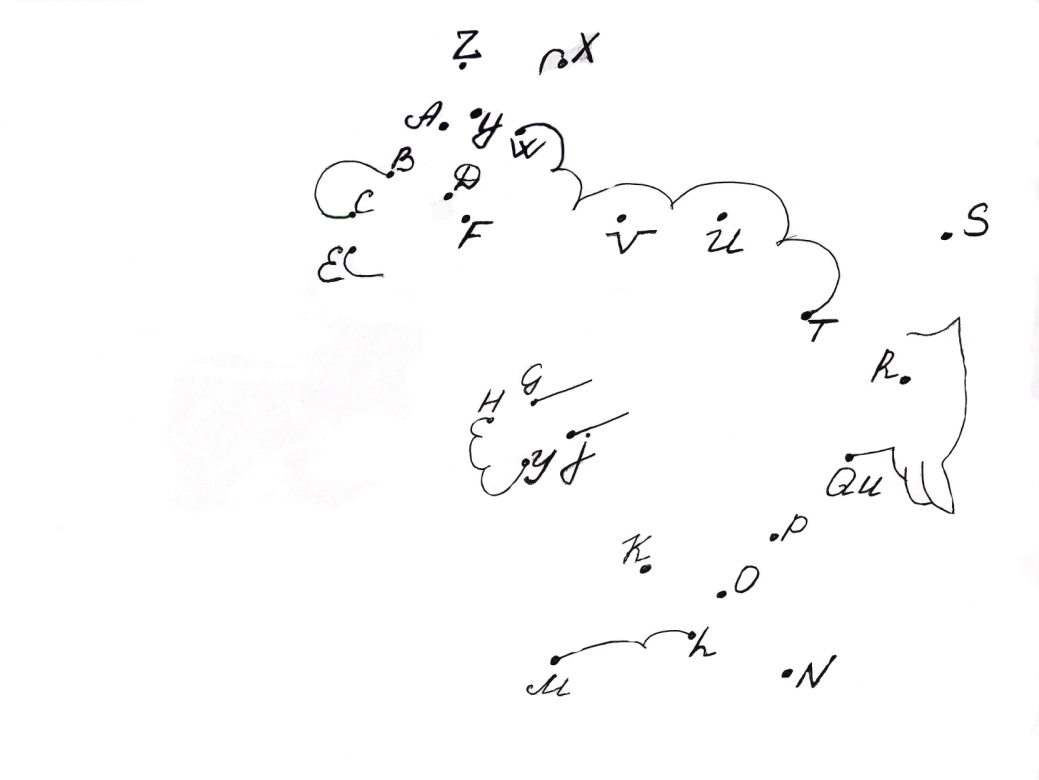 Z X
A Y W
B
D
C
F V U S
E
T
R
G
H
Y j
Qu
P
K
O
h
M N